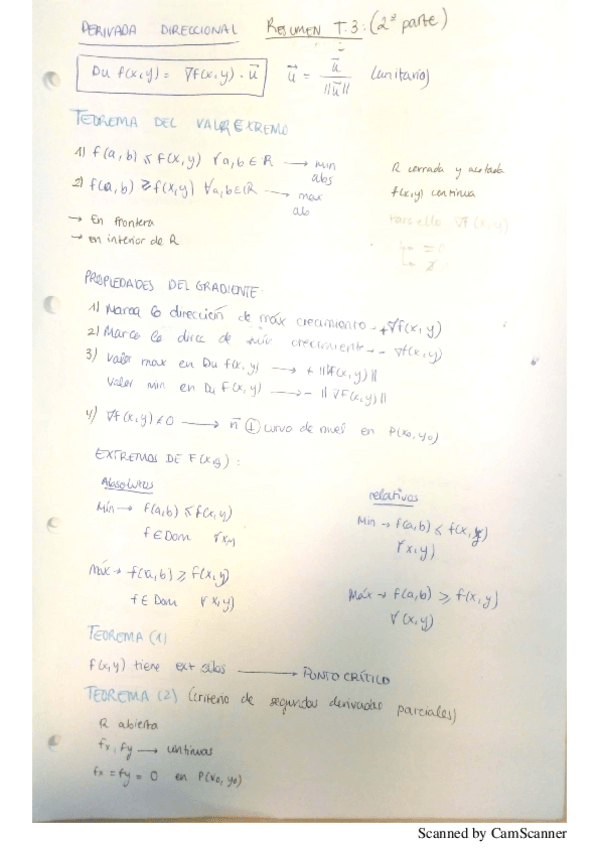 DERIVADA DIRECCIONAL RESUMEN T.3: (2ª parte)
Du f(x,y) = ∇f(x,y) · u⃗   u⃗ = u⃗ / ||u⃗|| (unitario)
TEOREMA DEL VALOR EXTREMO
1) f(a,b) ≤ f(x,y) ∀a,b ∈ R → min abs
R cerrada y acotada
2) f(a,b) ≥ f(x,y) ∀a,b ∈ R → max ab
f(x,y) continua
→ En frontera
→ en interior de R
∇f(x,y)
= 0
PROPIEDADES DEL GRADIENTE:
1) Marca la dirección de máx crecimiento → +∇f(x,y)
2) Marca la direc de mín crecimiento → - ∇f(x,y)
3) Valor max en Du f(x,y) → + ||∇f(x,y)||
Valor min en Du f(x,y) → - ||∇f(x,y)||
4) ∇f(x,y) ≠ 0 → n⃗ ⊥ curva de nivel en P(x0,y0)
EXTREMOS DE f(x,y):
Absolutos
relativos
Mín → f(a,b) ≤ f(x,y)
f ∈ Dom ∀x,y
Min → f(a,b) ≤ f(x,y)
∀x,y)
Máx → f(a,b) ≥ f(x,y)
f ∈ Dom ∀x,y)
Máx → f(a,b) ≥ f(x,y)
∀(x,y)
TEOREMA (1)
f(x,y) tiene ext abs → PUNTO CRÍTICO
TEOREMA (2) (criterio de segundas derivadas parciales)
R abierta
fx, fy → continuas
fx = fy = 0 en P(x0,y0)
Scanned by CamScanner